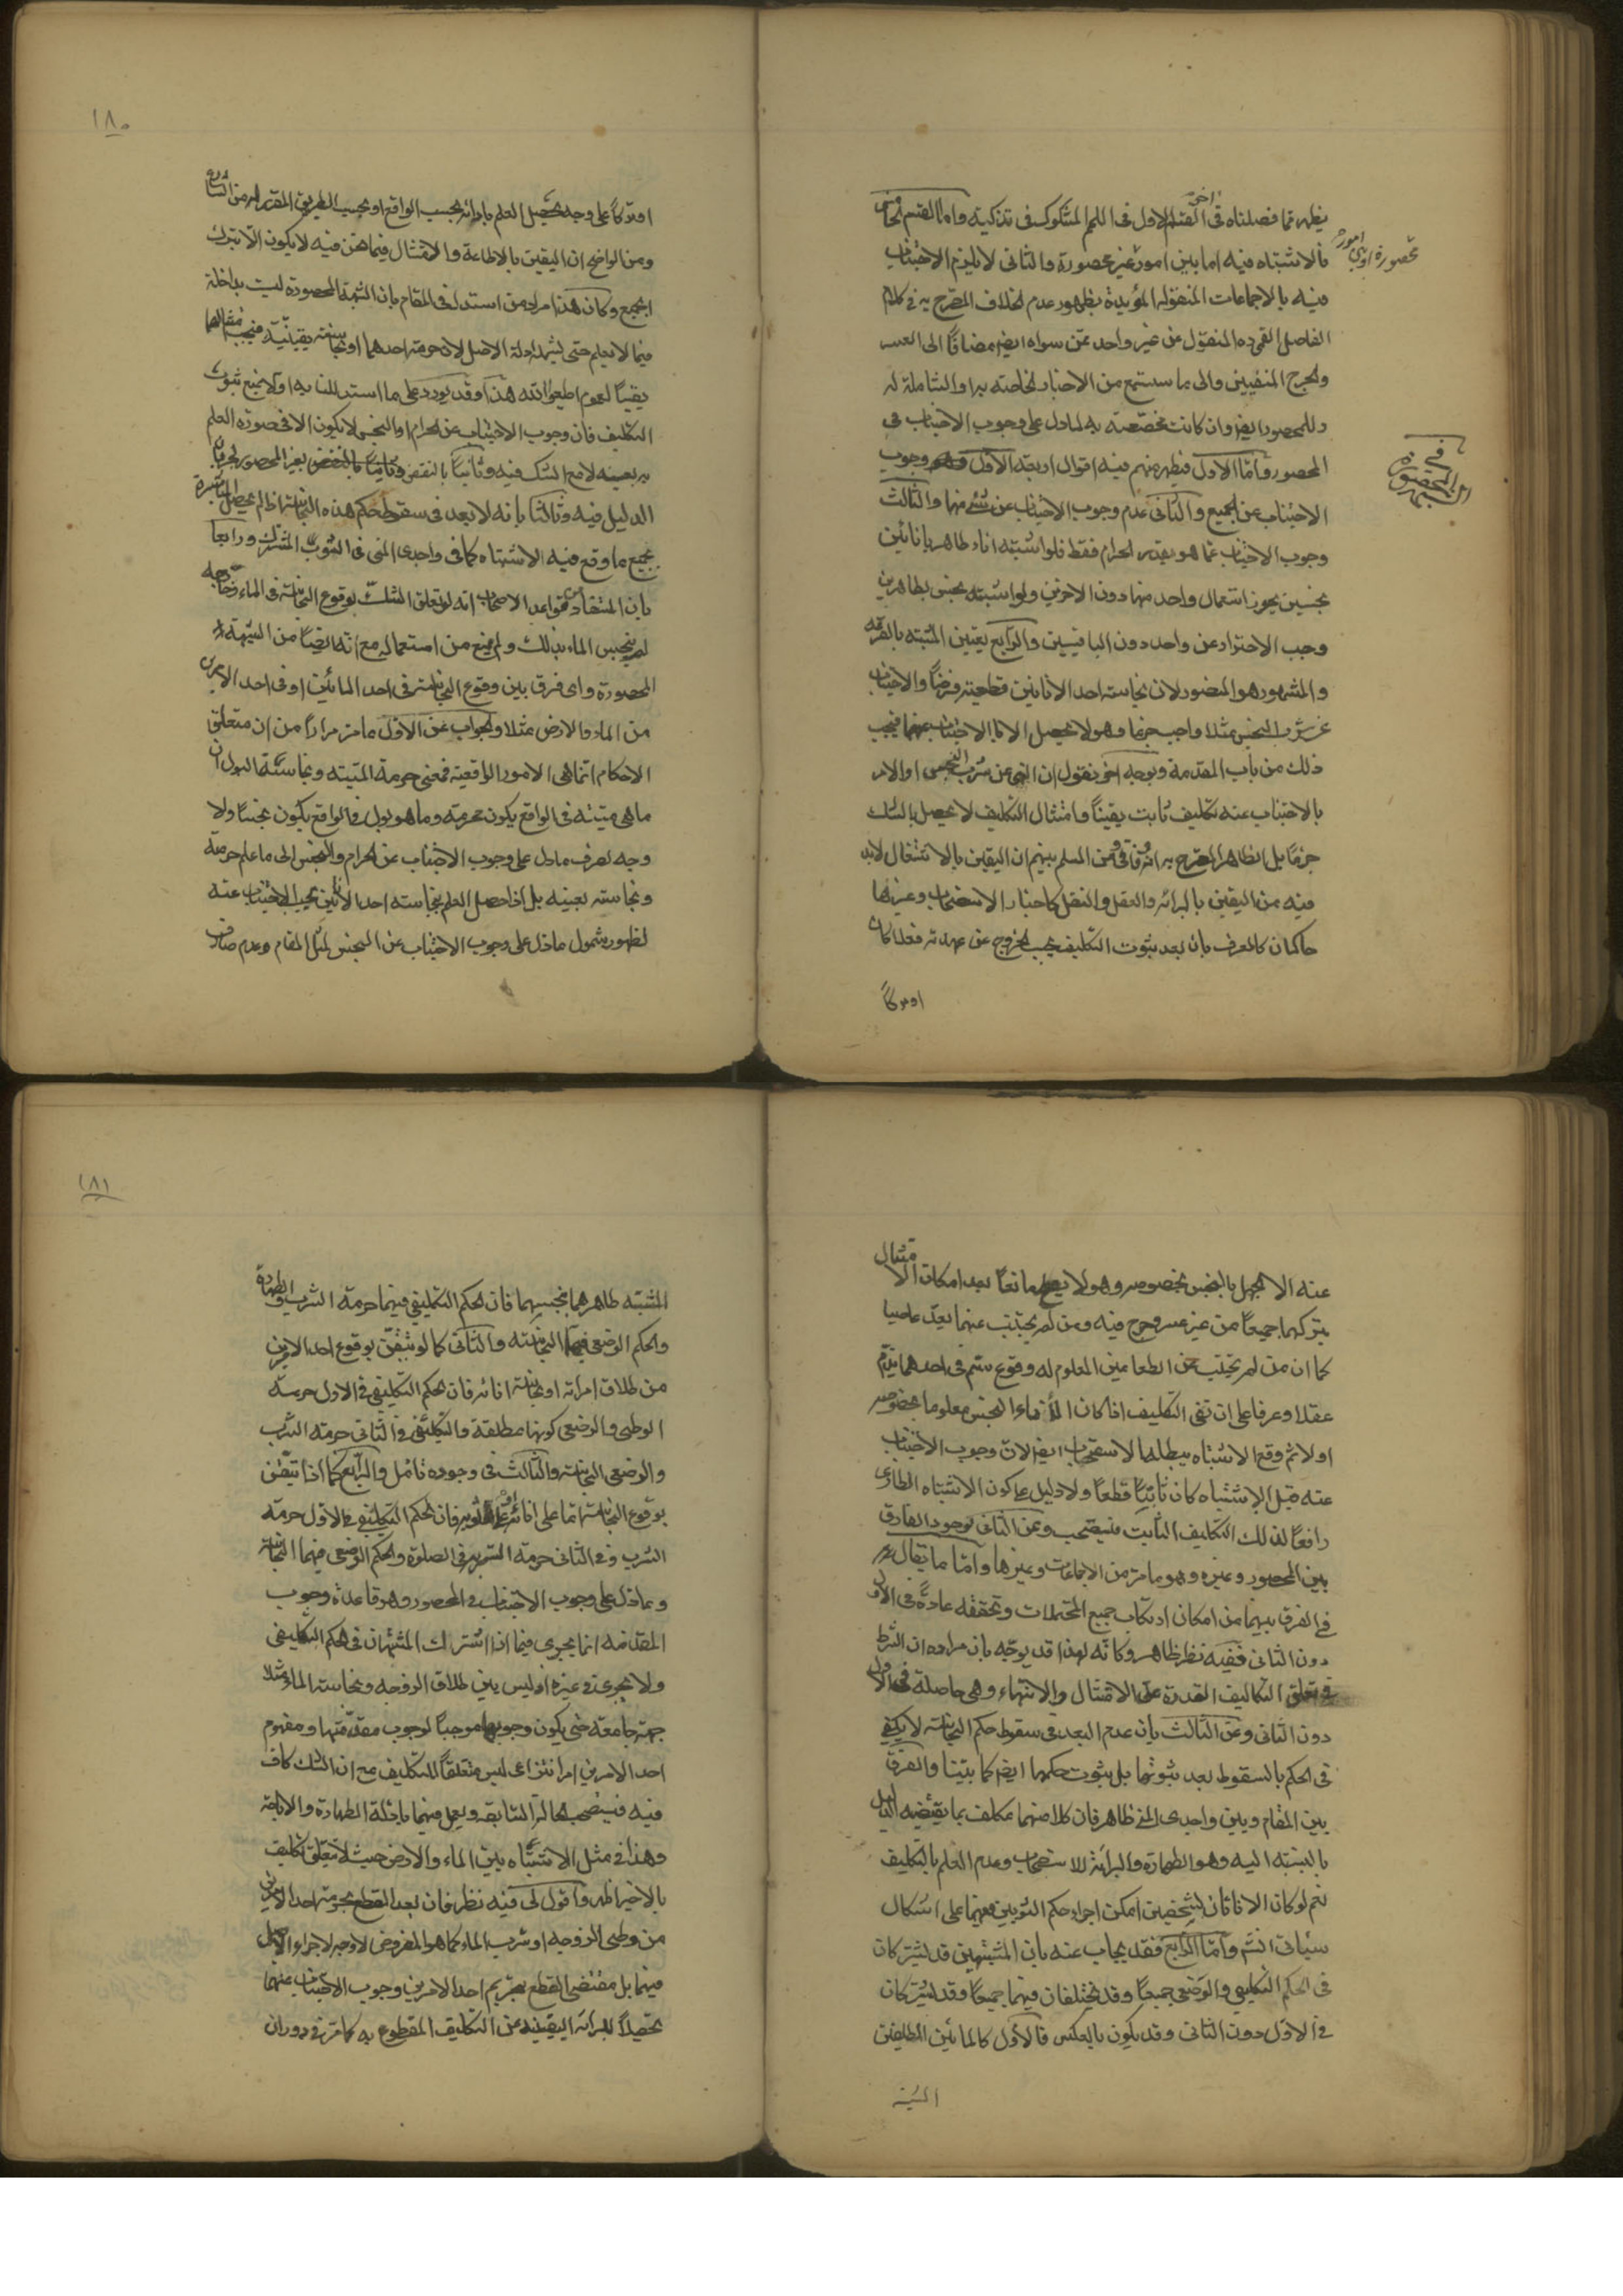 يظهر مما فصلناه فى القسم الاول فى اللحم المشكوك فى تذكيته واما القسم الخامس
اخر
محصورة او بين امور
فالاشتباه فيه اما بين امور غير محصورة والثانى لا يلزم الاجتناب
فيه بالاجماعات المنقوله المؤيدة بظهور عدم الخلاف المصرح به فى كلام
الفاضل القمى ره المنقول عن غير واحد ممن سواه ايضا مضافا الى العسر
والحرج المنفيين والى ما ستسمع من الاخبار الخاصة به او الشاملة له
وللمحصور ايضا وان كانت مختصة به لما دل على وجوب الاجتناب فى
المحصور واما الاول فيظهر منهم فيه اقوال اربعة الاول وجوب
فى الشبهة المحصورة
الاجتناب عن الجميع والثانى عدم وجوب الاجتناب عن شئ منها والثالث
وجوب الاجتناب عما هو بقدر الحرام فقط فلو اشتبه اناء طاهر بانائين
نجسين يجوز استعمال واحد منها دون الاخرين ولو اشتبه نجس بطاهرين
وجب الاحتراز عن واحد دون الباقيين والرابع تعيين المشتبه بالقرعه
والمشهور هو المنصور لان نجاسة احد الانائين قطعية فرضا والاجتناب
عن شرب النجس مثلا واجب جزما وهو لا يحصل الا بالاجتناب عنهما فيجب
ذلك من باب المقدمة وبوجه اخر نقول ان النهى عن شرب النجس او الامر
بالاجتناب عنه تكليف ثابت يقينا وامتثال التكليف لا يحصل بالشك
جزما بل الظاهر المصرح به انه وفاقى ومن المسلم بينهم ان اليقين بالاشتغال لابد
فيه من اليقين بالبرائه والعقل والنقل كاخبار الاستصحاب وغيرها
حاكمان كالعرف بان بعد ثبوت التكليف يجب الخروج عن عهدته فعلا كان
او تركا
١٨٠
او تركا على وجه تحصيل العلم بادائه بحسب الواقع او بحسب الطريق المقرر له من الشارع
ومن الواضح ان اليقين بالاطاعة والامتثال فيما نحن فيه لا يكون الا بترك
الجميع وكان هذا مراد من استدل فى المقام بان الشبهة المحصورة ليست بداخلة
فيما لا يعلم حتى يشمله ادلة الاصل لان حرمة احدهما او نجاسته يقينية فيجب امتثالهما
يقينا لعموم اطيعوا الله هذا وقد يورد على ما استدللنا به اولا بمنع ثبوت
التكليف فان وجوب الاجتناب عن الحرام او النجس لا يكون الا فى صورة العلم
به بعينه لا مع الشك فيه وثانيا بالنقض بغير المحصور لجريان
الدليل فيه وثالثا بانه لا بعد فى سقوط حكم هذه النجاسة اذا لم يحصل المباشرة
بجميع ما وقع فيه الاشتباه كما فى واجدى المنى فى الثوب المشترك ورابعا
بان المستفاد من قواعد الاصحاب انه لو تعلق الشك بوقوع النجاسة فى الماء وخارجه
لم ينجس الماء بذلك ولم يمنع من استعماله مع انه ايضا من الشبهة
المحصورة واى فرق بين وقوع النجاسة فى احد المائين او فى احد الامرين
من الماء والارض مثلا والجواب عن الاول ما مر مرارا من ان متعلق
الاحكام انما هى الامور الواقعية فمعنى حرمة الميته ونجاسة البول ان
ما هى ميتة فى الواقع يكون محرمة وما هو بول فى الواقع يكون نجسا ولا
وجه لصرف ما دل على وجوب الاجتناب عن الحرام والنجس الى ما علم حرمته
ونجاسته بعينه بل اذا حصل العلم بنجاسة احد الانائين يجب الاجتناب عنه
لظهور شمول ما دل على وجوب الاجتناب عن النجس لمثل المقام وعدم صارف
عنه الا الجهل بالنجس بخصوصه وهو لا يصلح مانعا بعد امكان الامتثال
بتركهما جميعا من غير عسر وحرج فيه ومن لم يجتنب عنهما يعد عاصيا
كما ان من لم يجتنب عن الطعامين المعلوم له وقوع سم فى احدهما يذم
عقلا وعرفا على ان نفى التكليف اذا كان الاناء النجس معلوما بخصوصه
اولا ثم وقع الاشتباه يبطلها الاستصحاب ايضا لان وجوب الاجتناب
عنه قبل الاشتباه كان ثابتا قطعا ولا دليل على كون الاشتباه الطارى
رافعا لذلك التكليف الثابت فيستصحب وعن الثانى بوجود الفارق
بين المحصور وغيره وهو ما مر من الاجماعات وغيرها واما ما يقال
فى الفرق بينهما من امكان ارتكاب جميع المحتملات وتحققه عادة فى الاول
دون الثانى ففيه نظر ظاهر وكانه لهذا قد يوجه بان مراده ان الشرط
فى تعلق التكاليف القدرة على الامتثال والانتهاء وهى حاصلة فى الاول
دون الثانى وعن الثالث بان عدم البعد فى سقوط حكم النجاسة لا يكفى
فى الحكم بالسقوط بعد ثبوتها بل بثبوت حكمها ايضا كما بينا والفرق
بين المقام وبين واجدى المنى ظاهر فان كلا منهما مكلف بما يقتضيه الدليل
بالنسبة اليه وهو الطهارة والبرائة للاستصحاب وعدم العلم بالتكليف
نعم لو كان الاناءان لشخصين امكن اجراء حكم الثوبين فيهما على اشكال
سياتى انشاء واما الرابع فقد يجاب عنه بان المشتبهين قد يشتركان
فى الحكم التكليفى والوضعى جميعا وقد يختلفان فيهما جميعا وقد يشتركان
فى الاول دون الثانى وقد يكون بالعكس فالاول كالمائين المطلقين
المشتبه
١٨١
المشتبه طاهرهما بنجسهما فان الحكم التكليفى فيهما حرمة الشرب والطهارة
والحكم الوضعى فيهما النجاسة والثانى كما لو تيقن بوقوع احد الامرين
من طلاق امراته او نجاسة انائه فان الحكم التكليفى فى الاول حرمة
الوطى والوضعى كونها مطلقة والتكليفى فى الثانى حرمة الشرب
والوضعى النجاسة والثالث فى وجوده تامل والرابع كما اذا تيقن
بوقوع النجاسة اما على انائه او على ثوبه فان الحكم التكليفى فى الاول حرمة
الشرب وفى الثانى حرمة الستر به فى الصلوة والحكم الوضعى فيهما النجاسة
وما دل على وجوب الاجتناب فى المحصور وهو قاعدة وجوب
المقدمه انما يجرى فيما اذا اشترك المشتبهان فى الحكم التكليفى
ولا يجرى فى غيره اذ ليس بين طلاق الزوجه ونجاسة الماء مثلا
جهة جامعة حتى يكون وجوبها موجبا لوجوب مقدمتها ومفهوم
احد الامرين امر انتزاعى ليس متعلقا للتكليف مع ان الشك كاف
فيه فيستصحب الحالة السابقه ويعمل فيهما بادلة الطهارة والاباحة
وهذا فى مثل الاشتباه بين الماء والارض حيث لا تعلق تكليف
بالاخير اظهر واقول لى فيه نظر فان بعد القطع بحرمة احد الامرين
من وطى الزوجه او شرب الماء كما هو المفروض لا وجه لاجراء الاصل
فيهما بل مقتضى القطع بتحريم احد الامرين وجوب الاجتناب عنهما
تحصيلا للبرائه اليقينيه عن التكليف المقطوع به كما مر فى دوران